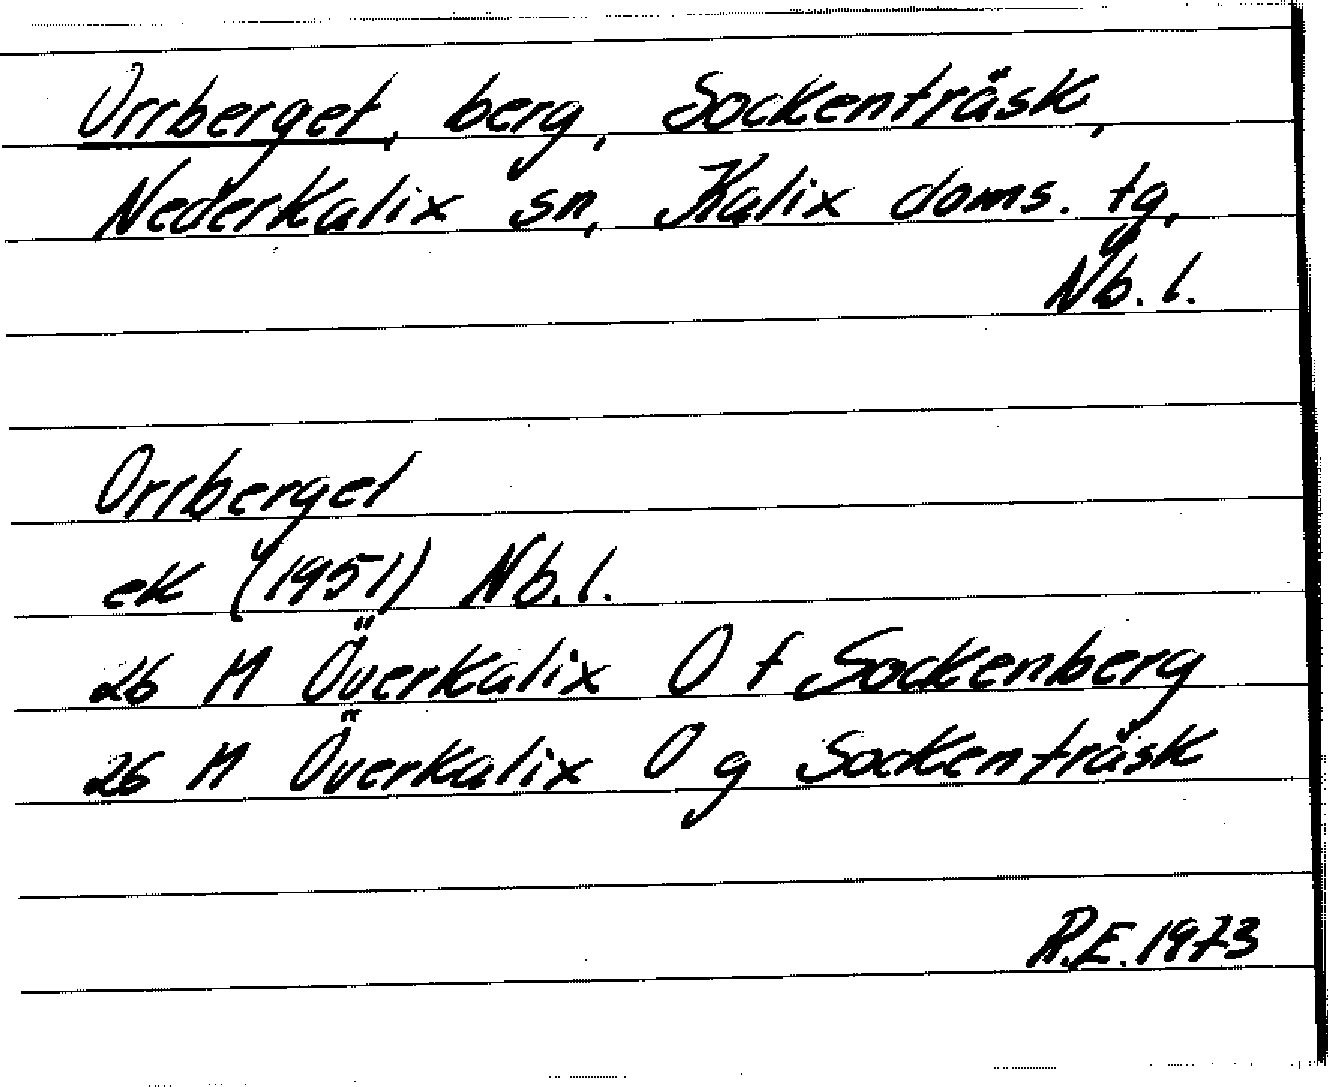 Orrberget, berg, Sockenträsk,
Nederkalix sn, Kalix doms. tg,
Nb. l.
Orrberget
ek (1951) Nb. l.
26 M Överkalix O f Sockenberg
26 M Överkalix O g Sockenträsk
R.E. 1973